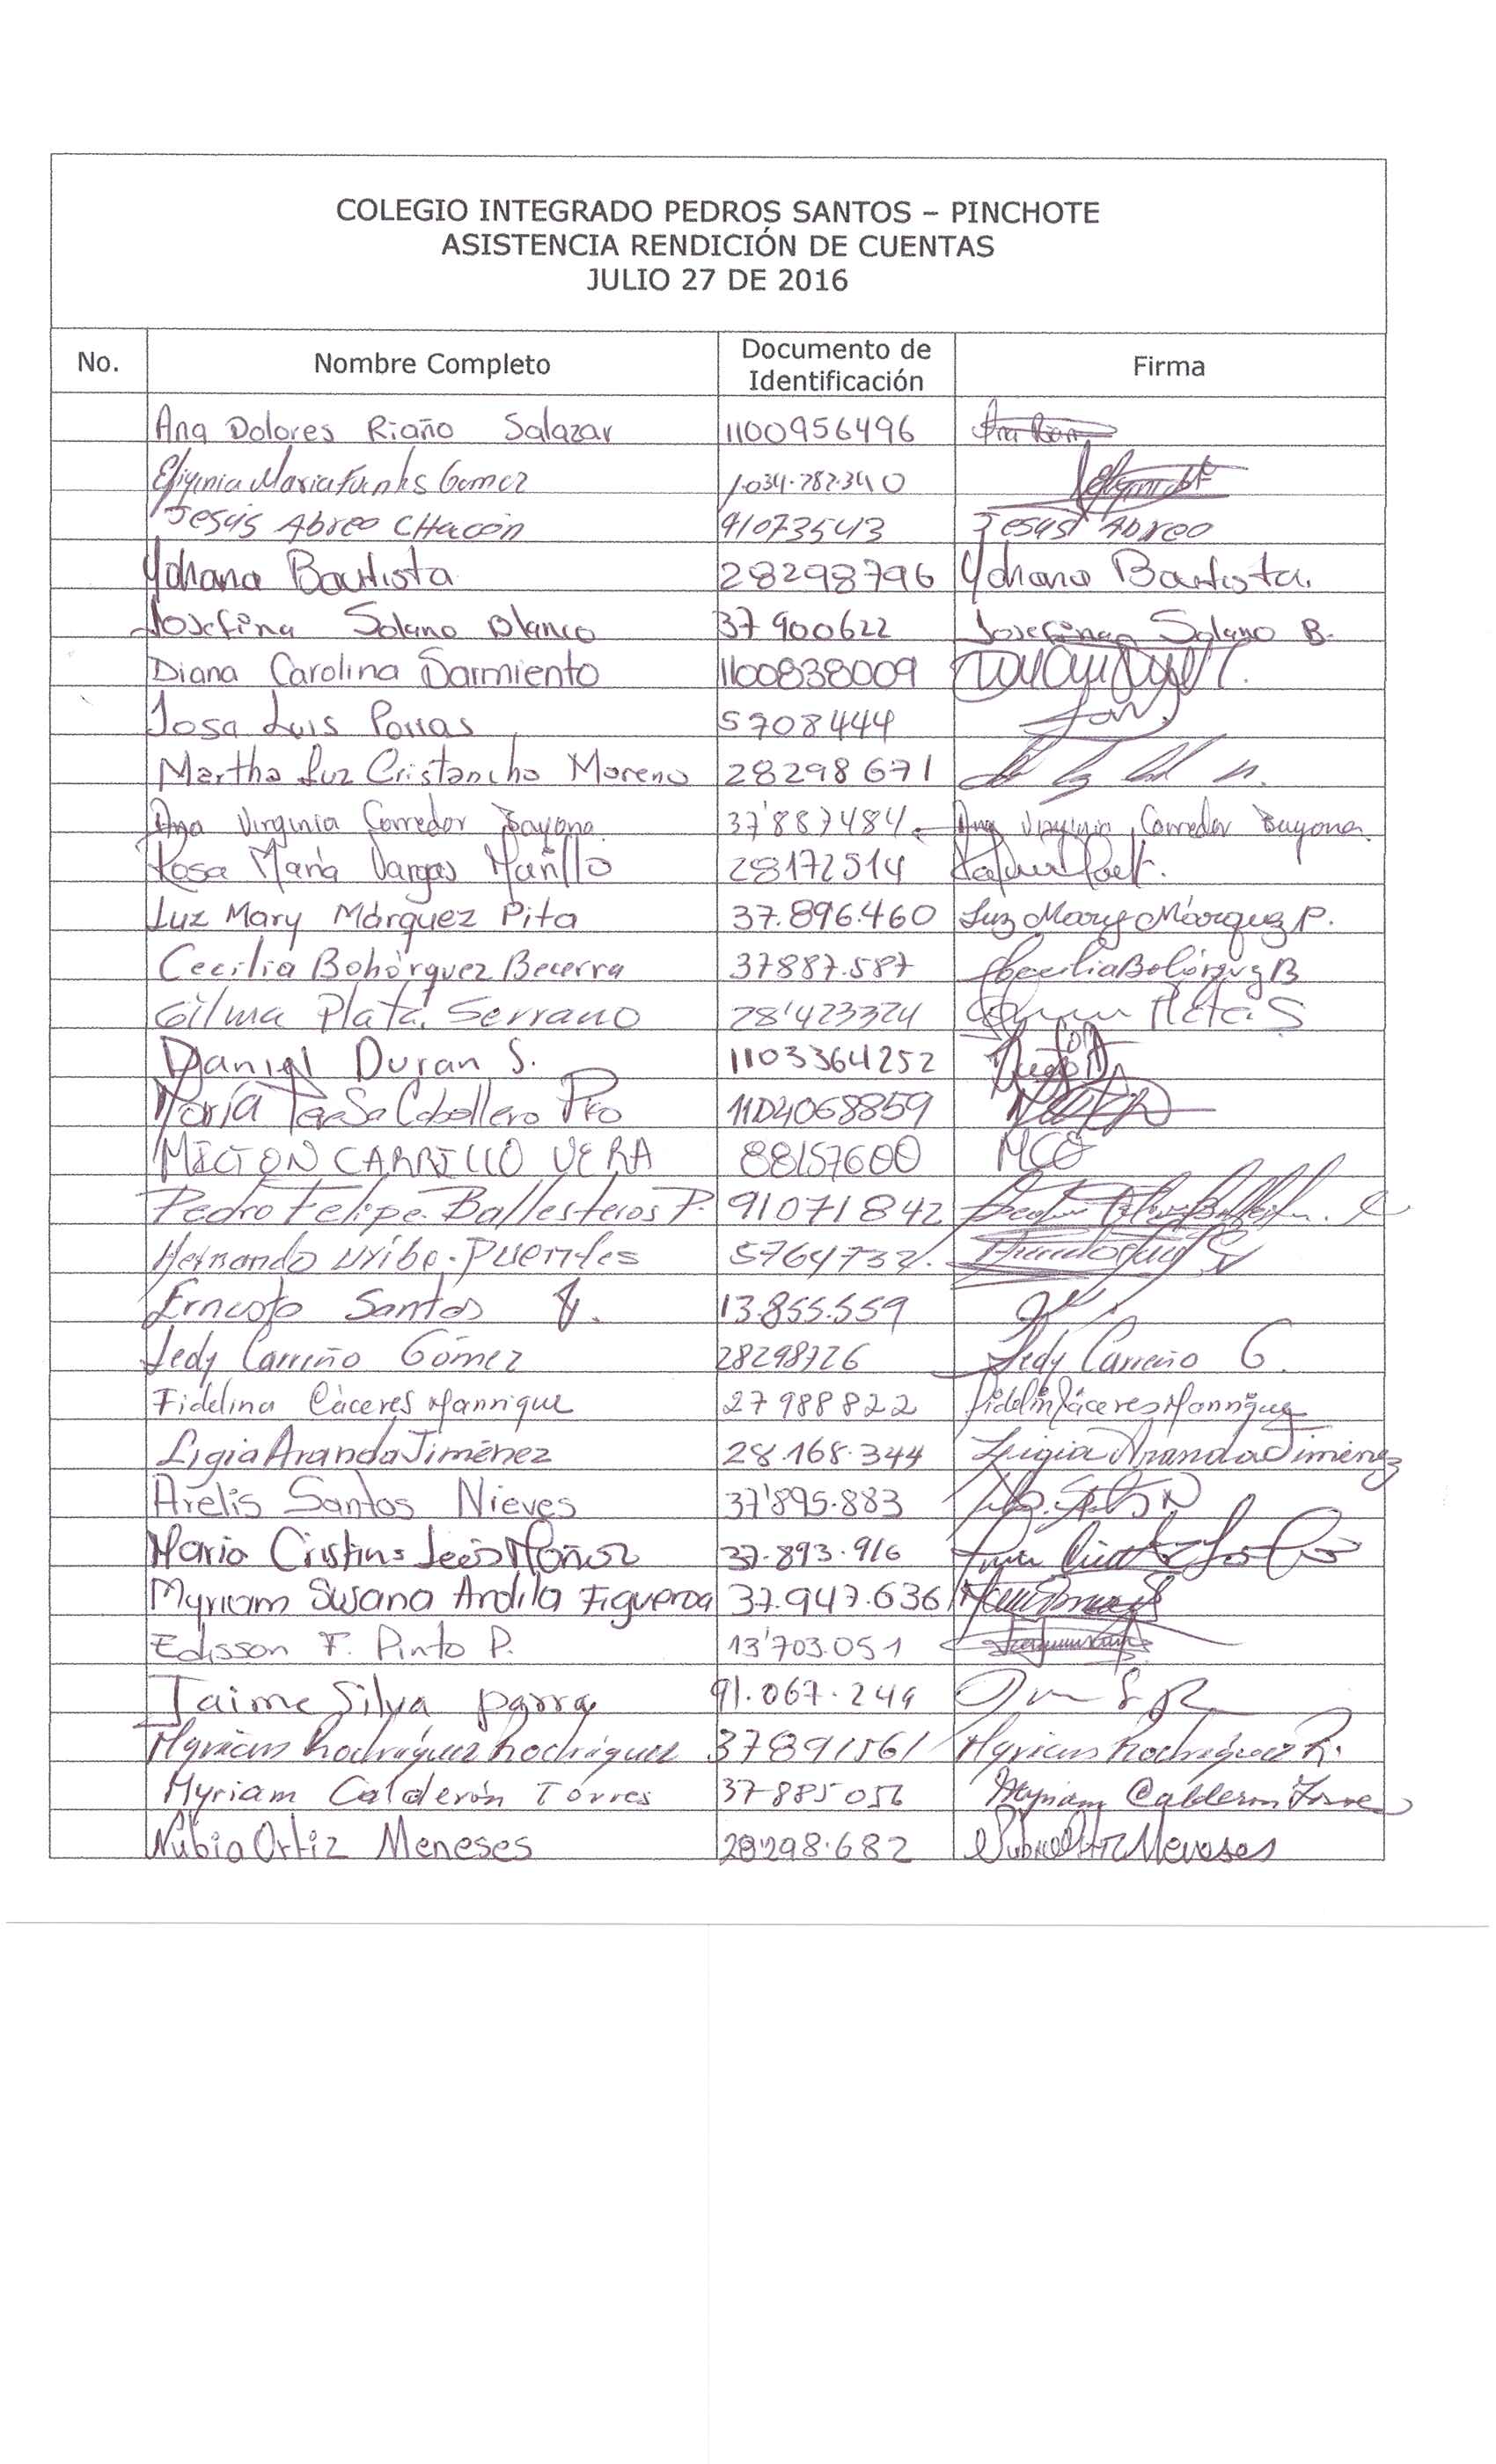 COLEGIO INTEGRADO PEDROS SANTOS – PINCHOTE
ASISTENCIA RENDICIÓN DE CUENTAS
JULIO 27 DE 2016
No. Nombre Completo Documento de Identificación Firma
Ana Dolores Riaño Salazar 1100956496
Efigenia Maria Fuentes Gomez 1.034.782.340
Jesús Abreo CHacón 91073543 Jesus Abreo
Yohana Bautista 28298796 Yohana Bautista.
Josefina Solano Blanco 37900622 Josefina Solano B.
Diana Carolina Sarmiento 1100838009
Jose Luis Porras 5708444
Martha Luz Cristancho Moreno 28298671
Ana Virginia Corredor Bayona. 37'887484 Ana Virginia Corredor Bayona
Rosa María Vargas 28172514
Luz Mary Márquez Pita 37.896.460 Luz Mary Márquez P.
Cecilia Bohórquez Becerra 37887.587 Cecilia Bohórquez B
Gilma Plata Serrano 28'423324 Plata S
Daniel Duran S. 1103364252
María Teresa Caballero 1104068859
MILTON CARRILLO VERA 88157600 MCO
Pedro Felipe Ballesteros P. 91071842
Hernando Uribe Puentes 5764732.
Ernesto Santos 13.855.559
Ledy Carreño Gómez 28298726 Ledy Carreño G.
Fidelina Cáceres Manrique 27988822 Fidelina Cáceres Manrique
Ligia Aranda Jiménez 28.168.344 Ligia Aranda Jiménez
Arelis Santos Nieves 37'895.883
Maria Cristina 37.893.916
Myriam Susana Ardila Figueroa 37.947.636
Edisson F. Pinto P. 13'703.051
Jaime Silva parra 91.067.249
Myriam Rodríguez Rodríguez 37891561 Myriam Rodríguez R.
Myriam Calderón Torres 37885056 Myriam Calderon Torres
Nubia Ortiz Meneses 28298.682 Nubia Ortiz Meneses